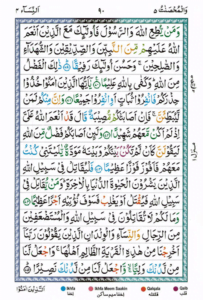 وَالْمُحْصَنٰتُ ٥ ٩٠ اَلنِّسَآء ٤
وَمَنْ يُّطِعِ اللّٰهَ وَالرَّسُوْلَ فَاُولٰٓئِكَ مَعَ الَّذِيْنَ اَنْعَمَ
اللّٰهُ عَلَيْهِمْ مِّنَ النَّبِيّٖنَ وَالصِّدِّيْقِيْنَ وَالشُّهَدَآءِ
وَالصّٰلِحِيْنَ ۚ وَحَسُنَ اُولٰٓئِكَ رَفِيْقًا ذٰلِكَ الْفَضْلُ
مِنَ اللّٰهِ ؕ وَكَفٰى بِاللّٰهِ عَلِيْمًا يٰٓاَيُّهَا الَّذِيْنَ اٰمَنُوْا خُذُوْا
حِذْرَكُمْ فَانْفِرُوْا ثُبَاتٍ اَوِ انْفِرُوْا جَمِيْعًا وَاِنَّ مِنْكُمْ لَمَنْ
لَّيُبَطِّئَنَّ ۚ فَاِنْ اَصَابَتْكُمْ مُّصِيْبَةٌ قَالَ قَدْ اَنْعَمَ اللّٰهُ عَلَيَّ
اِذْ لَمْ اَكُنْ مَّعَهُمْ شَهِيْدًا وَلَئِنْ اَصَابَكُمْ فَضْلٌ مِّنَ اللّٰهِ
لَيَقُوْلَنَّ كَاَنْ لَّمْ تَكُنْۢ بَيْنَكُمْ وَبَيْنَهٗ مَوَدَّةٌ يّٰلَيْتَنِيْ كُنْتُ
مَعَهُمْ فَاَفُوْزَ فَوْزًا عَظِيْمًا فَلْيُقَاتِلْ فِيْ سَبِيْلِ اللّٰهِ
الَّذِيْنَ يَشْرُوْنَ الْحَيٰوةَ الدُّنْيَا بِالْاٰخِرَةِ ؕ وَمَنْ يُّقَاتِلْ فِيْ
سَبِيْلِ اللّٰهِ فَيُقْتَلْ اَوْ يَغْلِبْ فَسَوْفَ نُؤْتِيْهِ اَجْرًا عَظِيْمًا
وَمَا لَكُمْ لَا تُقَاتِلُوْنَ فِيْ سَبِيْلِ اللّٰهِ وَالْمُسْتَضْعَفِيْنَ
مِنَ الرِّجَالِ وَالنِّسَآءِ وَالْوِلْدَانِ الَّذِيْنَ يَقُوْلُوْنَ رَبَّنَآ
اَخْرِجْنَا مِنْ هٰذِهِ الْقَرْيَةِ الظَّالِمِ اَهْلُهَا ۚ وَاجْعَلْ لَّنَا
مِنْ لَّدُنْكَ وَلِيًّا ۙ وَّاجْعَلْ لَّنَا مِنْ لَّدُنْكَ نَصِيْرًا
Ikhfa Ikhfa Meem Saakin Qalqala Qalb